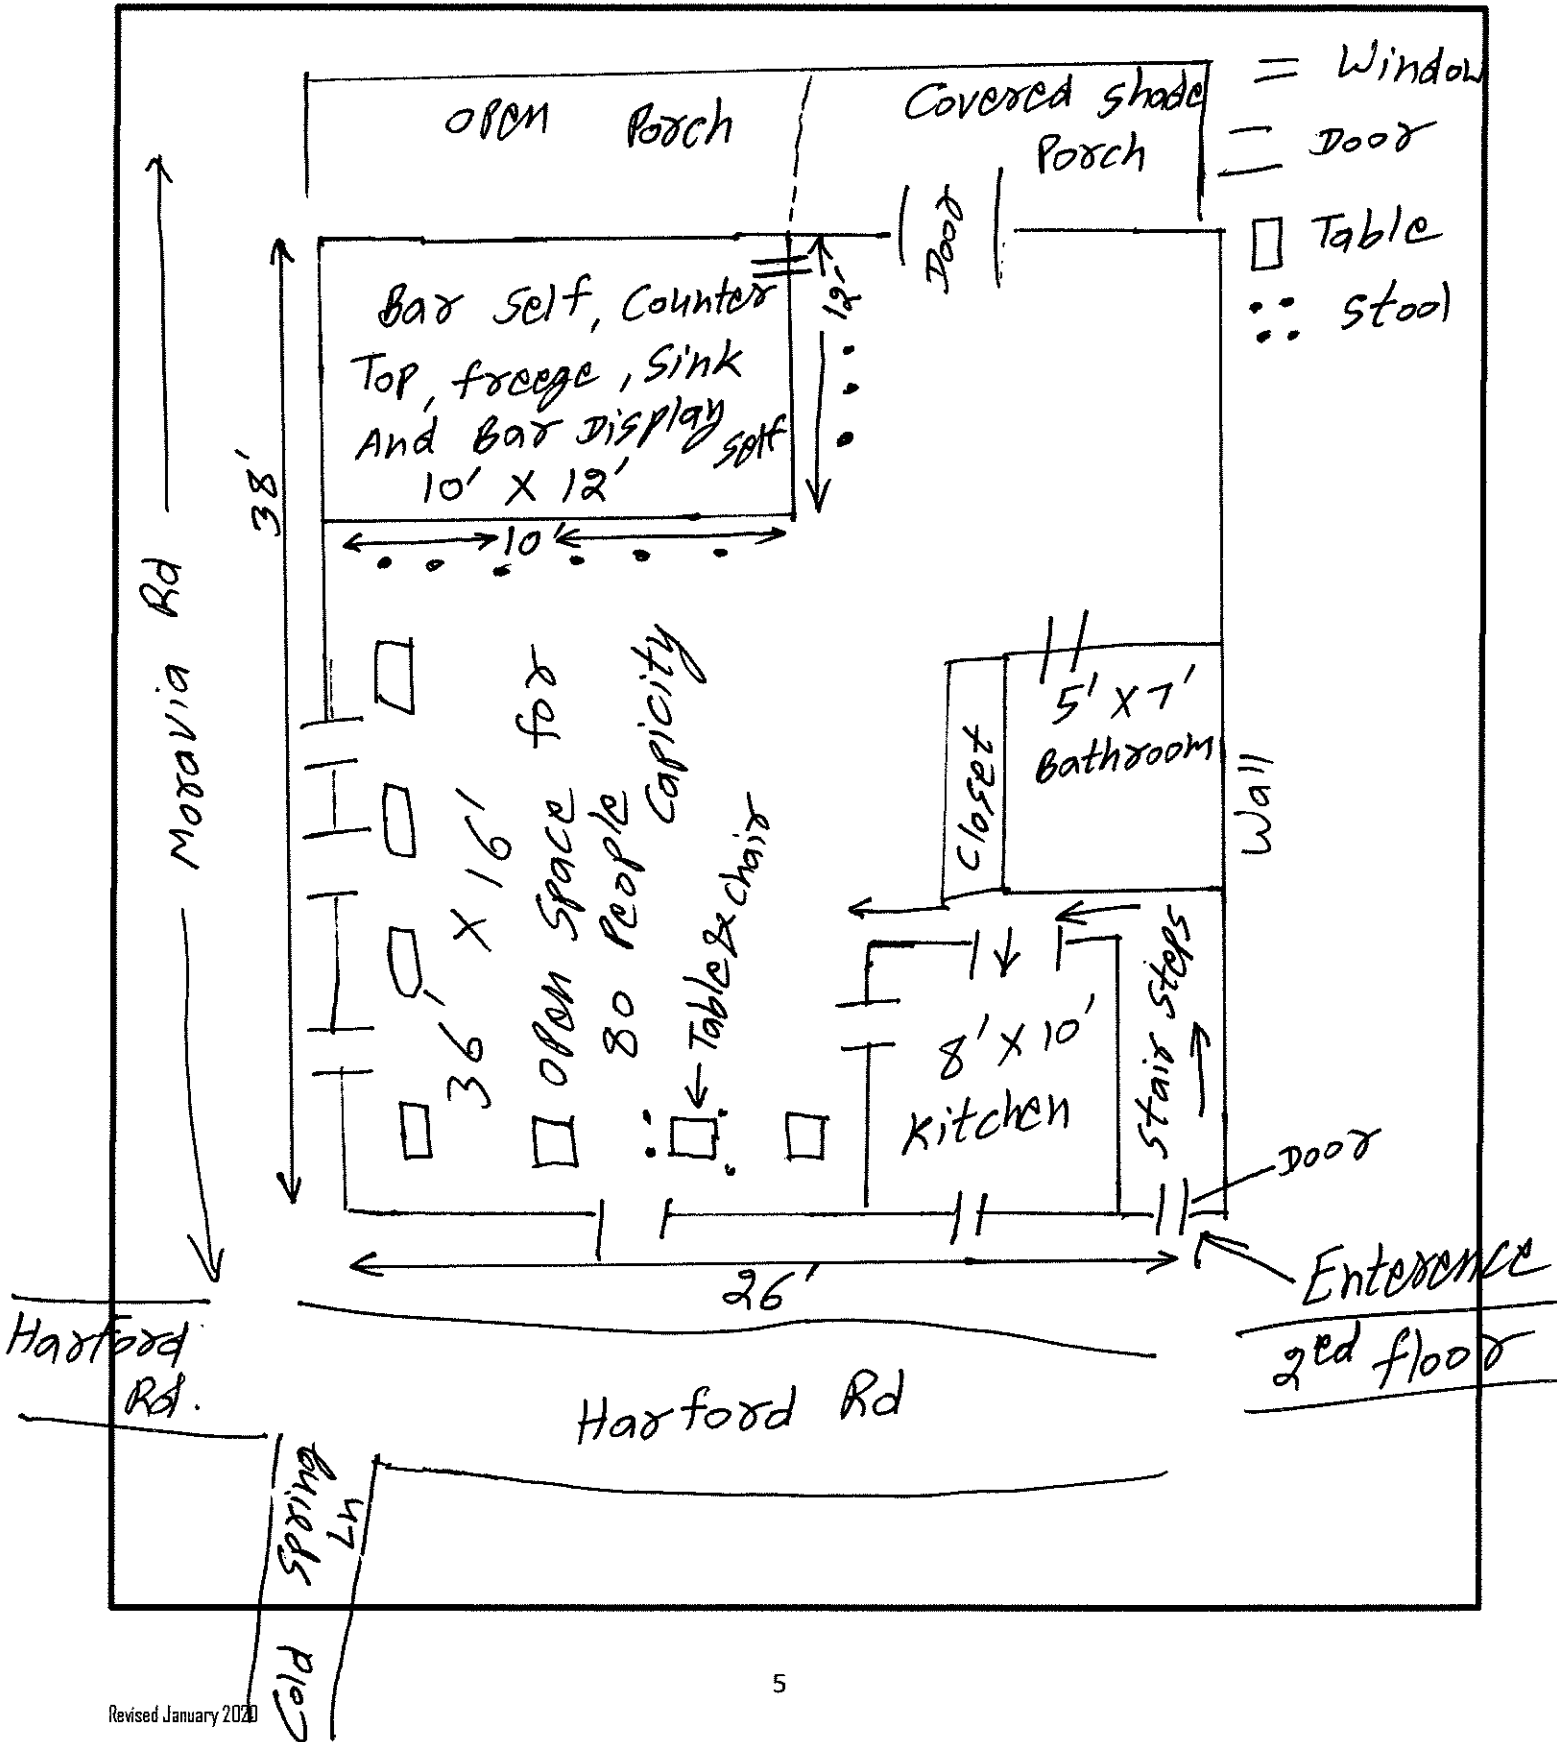 OPEN Porch
Covered shade
Porch
Window
Door
Table
Stool
Door
Bar Self, Counter
Top, freege, Sink
And Bar Display self
10' X 12'
12'
10'
38'
Moravia Rd
36' X 16'
Open Space for
80 People
Capicity
Table & chair
Closet
5' X 7'
Bathroom
Wall
8' X 10'
Kitchen
Stair Steps
Door
Enterence
2ed floor
26'
Harford
Rd.
Harford Rd
Cold Spring
Ln
5
Revised January 2020